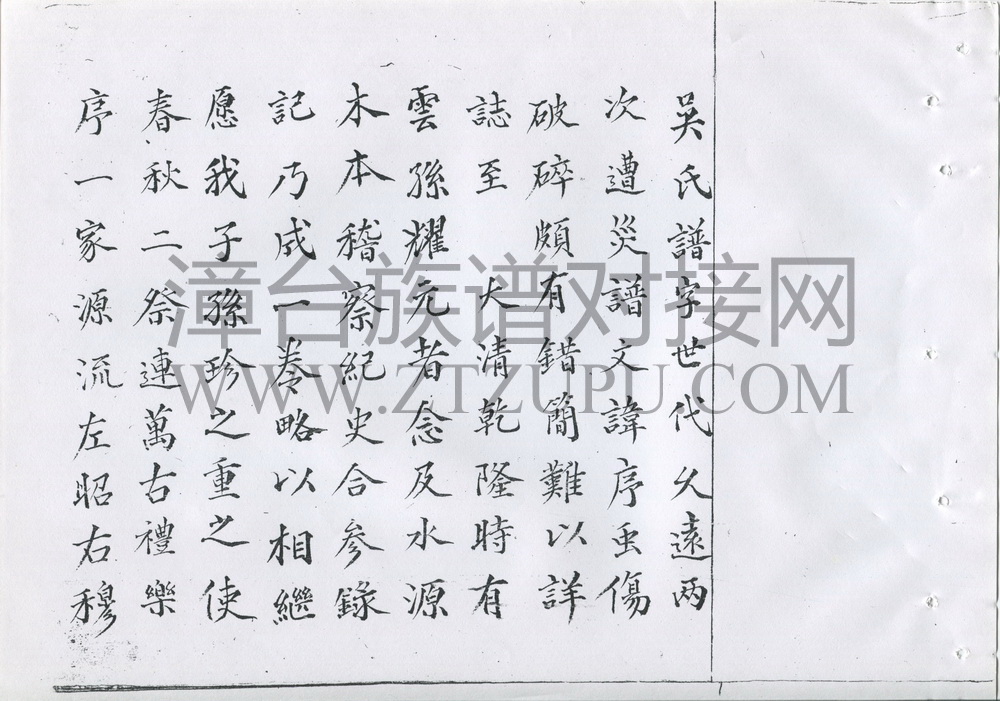 吳氏譜字世代久遠两
次遭災譜文諱序虫傷
破碎頗有錯簡難以詳
誌至 大清乾隆時有
雲孫耀元者念及水源
木本稽察紀史合参錄
記乃成一卷略以相繼
愿我子孫珍之重之使
春秋二祭連萬古禮樂
序一家源流左昭右穆
漳台族谱对接网
WWW.ZTZUPU.COM